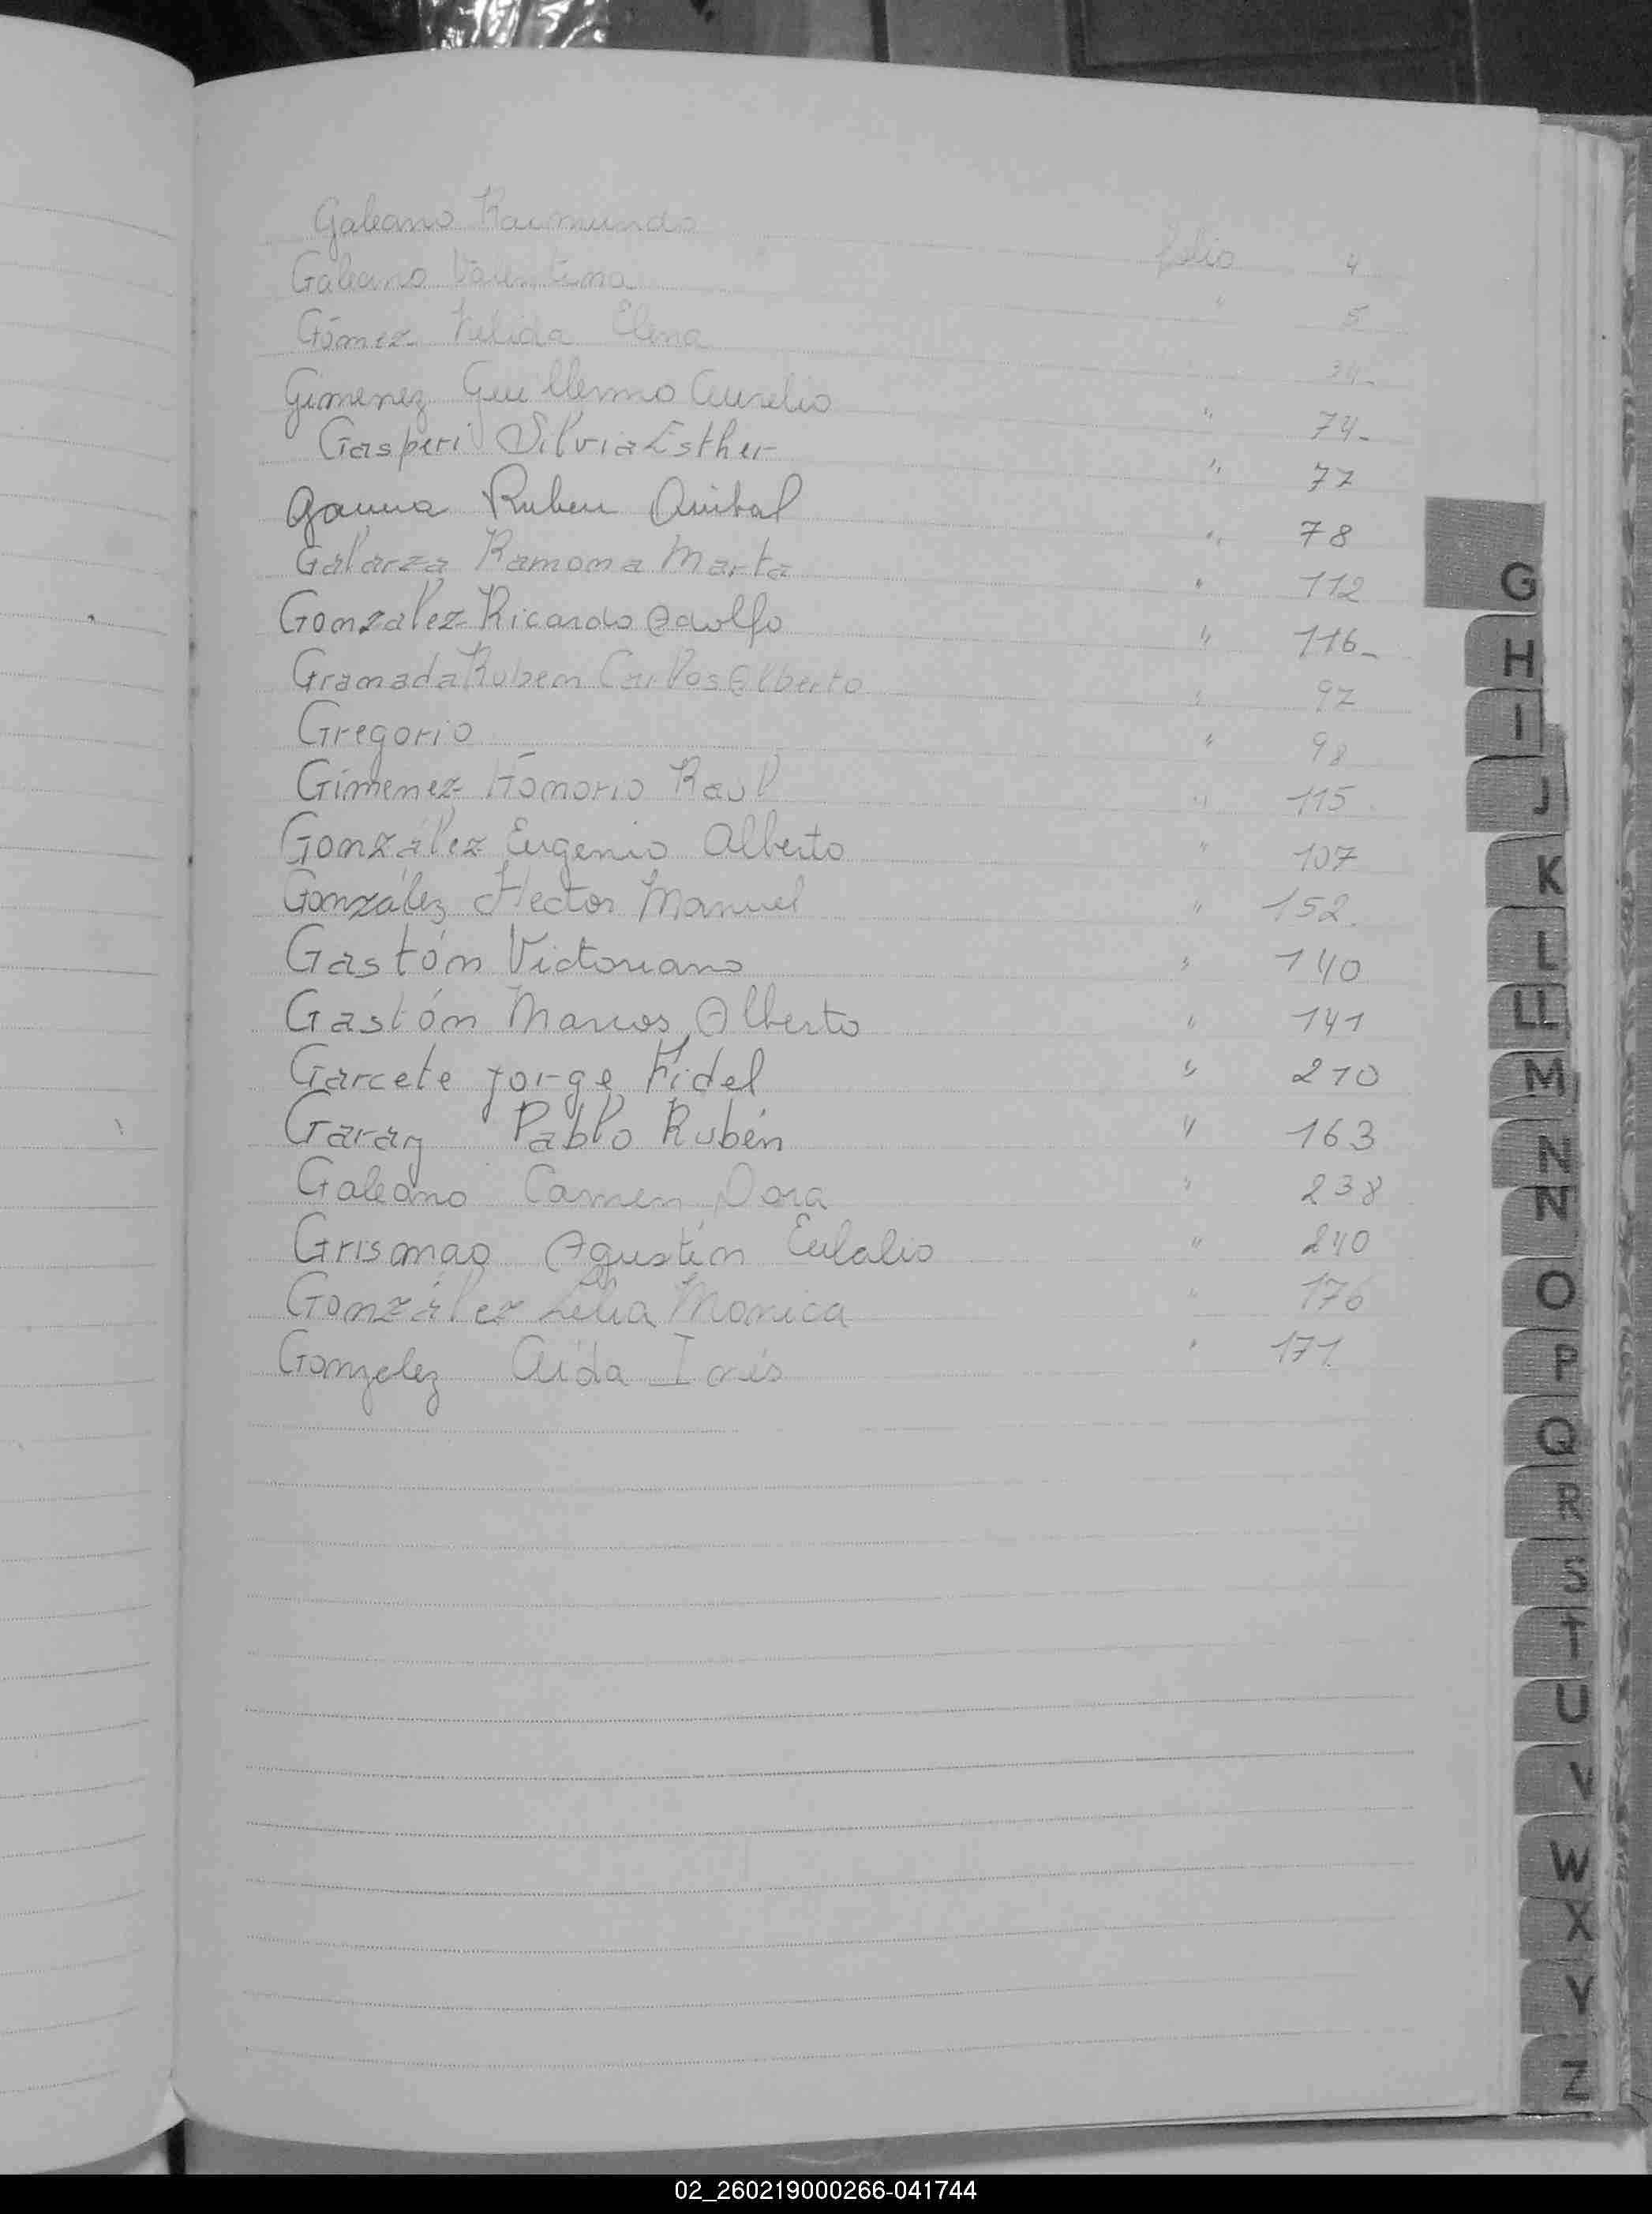 Galeano Raimundo folio 4
Galeano Valentina " 5
Gómez Nélida Elena 34-
Gimenez Guillermo Aurelio " 74-
Gasperi Silvia Esther " 77
Gauna Ruben Anibal " 78
Galarza Ramona Marta " 112
Gonzalez Ricardo Adolfo " 116-
Granada Ruben Carlos Alberto " 97
Gregorio " 98
Gimenez Honorio Raúl " 115
González Eugenio Alberto " 107
González Hector Manuel " 152.
Gastón Victoriano " 140
Gastón Marcos Alberto " 141
Garcete Jorge Fidel " 210
Garay Pablo Rubén " 163
Galeano Carmen Dora " 238
Grismao Agustín Eulalio " 240
González Lelia Monica " 176
Gonzelez Aída Inés " 171.
G
H
I
J
K
L
LL
M
N
Ñ
O
P
Q
R
S
T
U
V
W
X
Y
Z
02_260219000266-041744